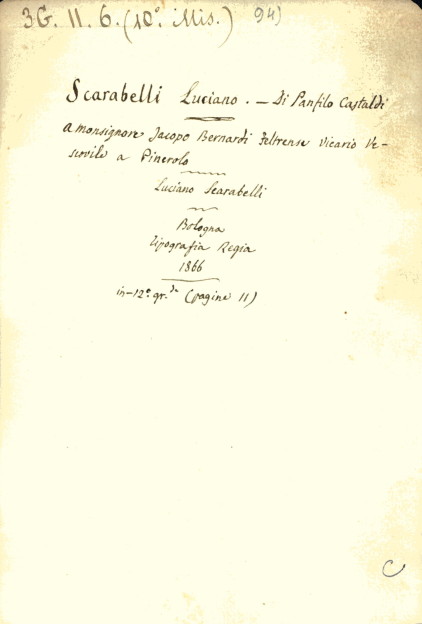 3G. 11. 6. (10.° Mis.) 94)
Scarabelli Luciano. — Di Panfilo Castaldi
A monsignore Jacopo Bernardi Feltrense Vicario Ve-
scovile a Pinerolo
Luciano Scarabelli
Bologna
Tipografia Regia
1866
in-12.° gr.de (pagine 11)
C